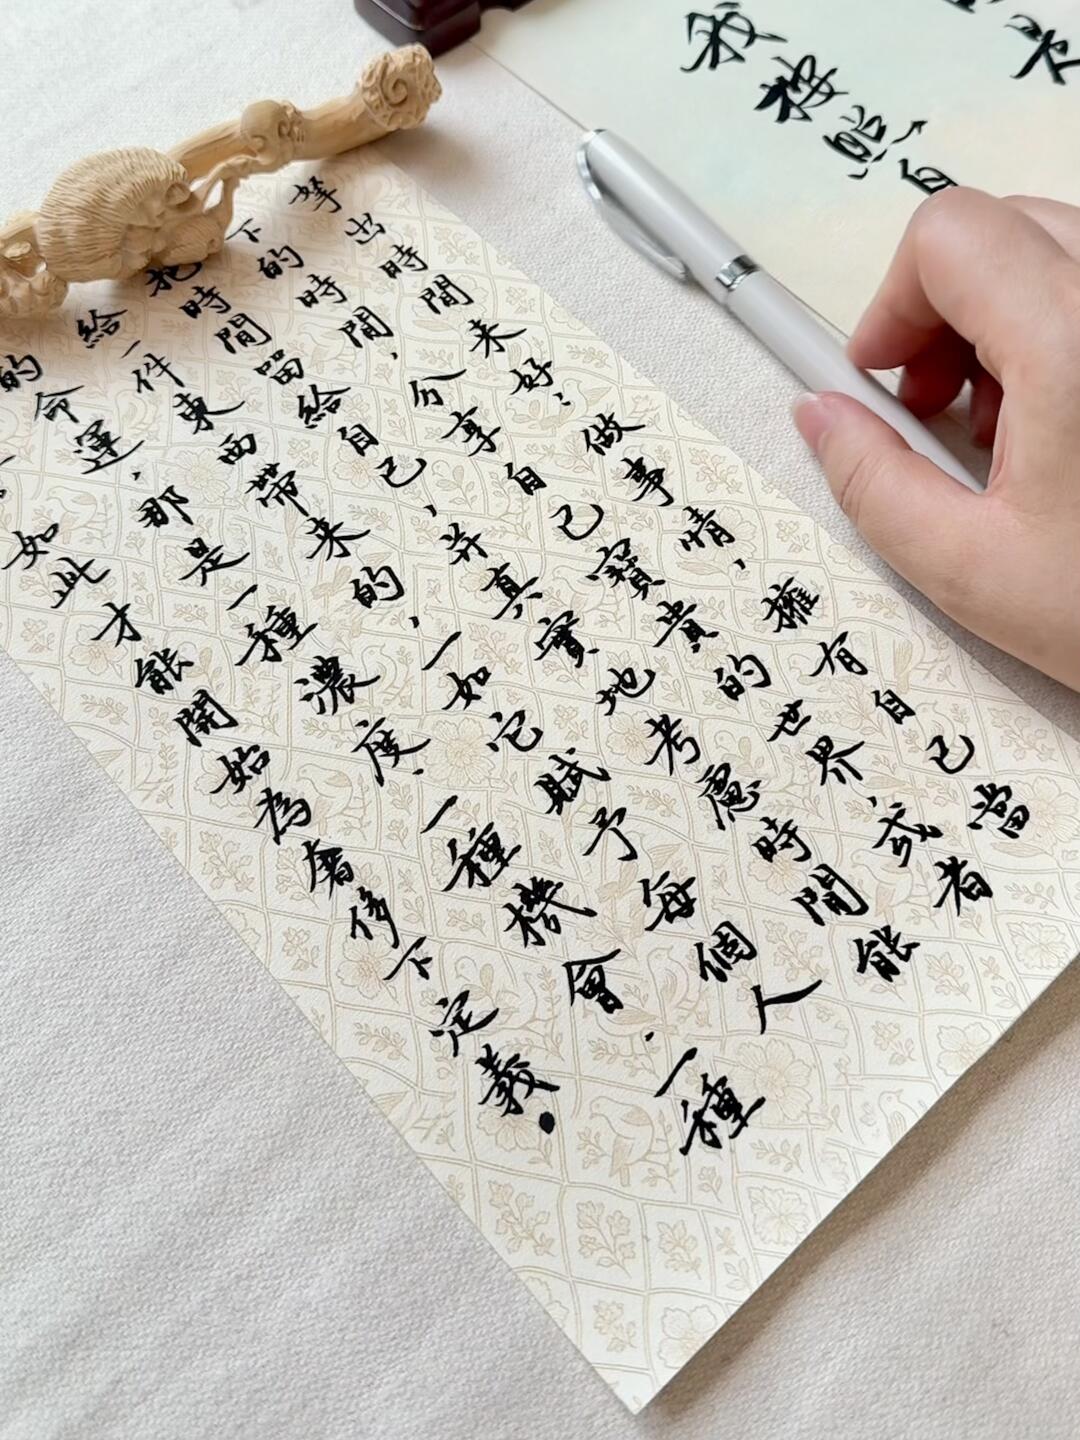 出時間来好好做事情，擁有自己當
下的時間，分享自己寶貴的世界，或者
把時間留給自己，并真實地考慮時間能
給一件東西帶来的，一如它賦予每個人
的命運，那是一種濃度，一種機會，一種
如此才能開始為奢侈下定義。
我按照自